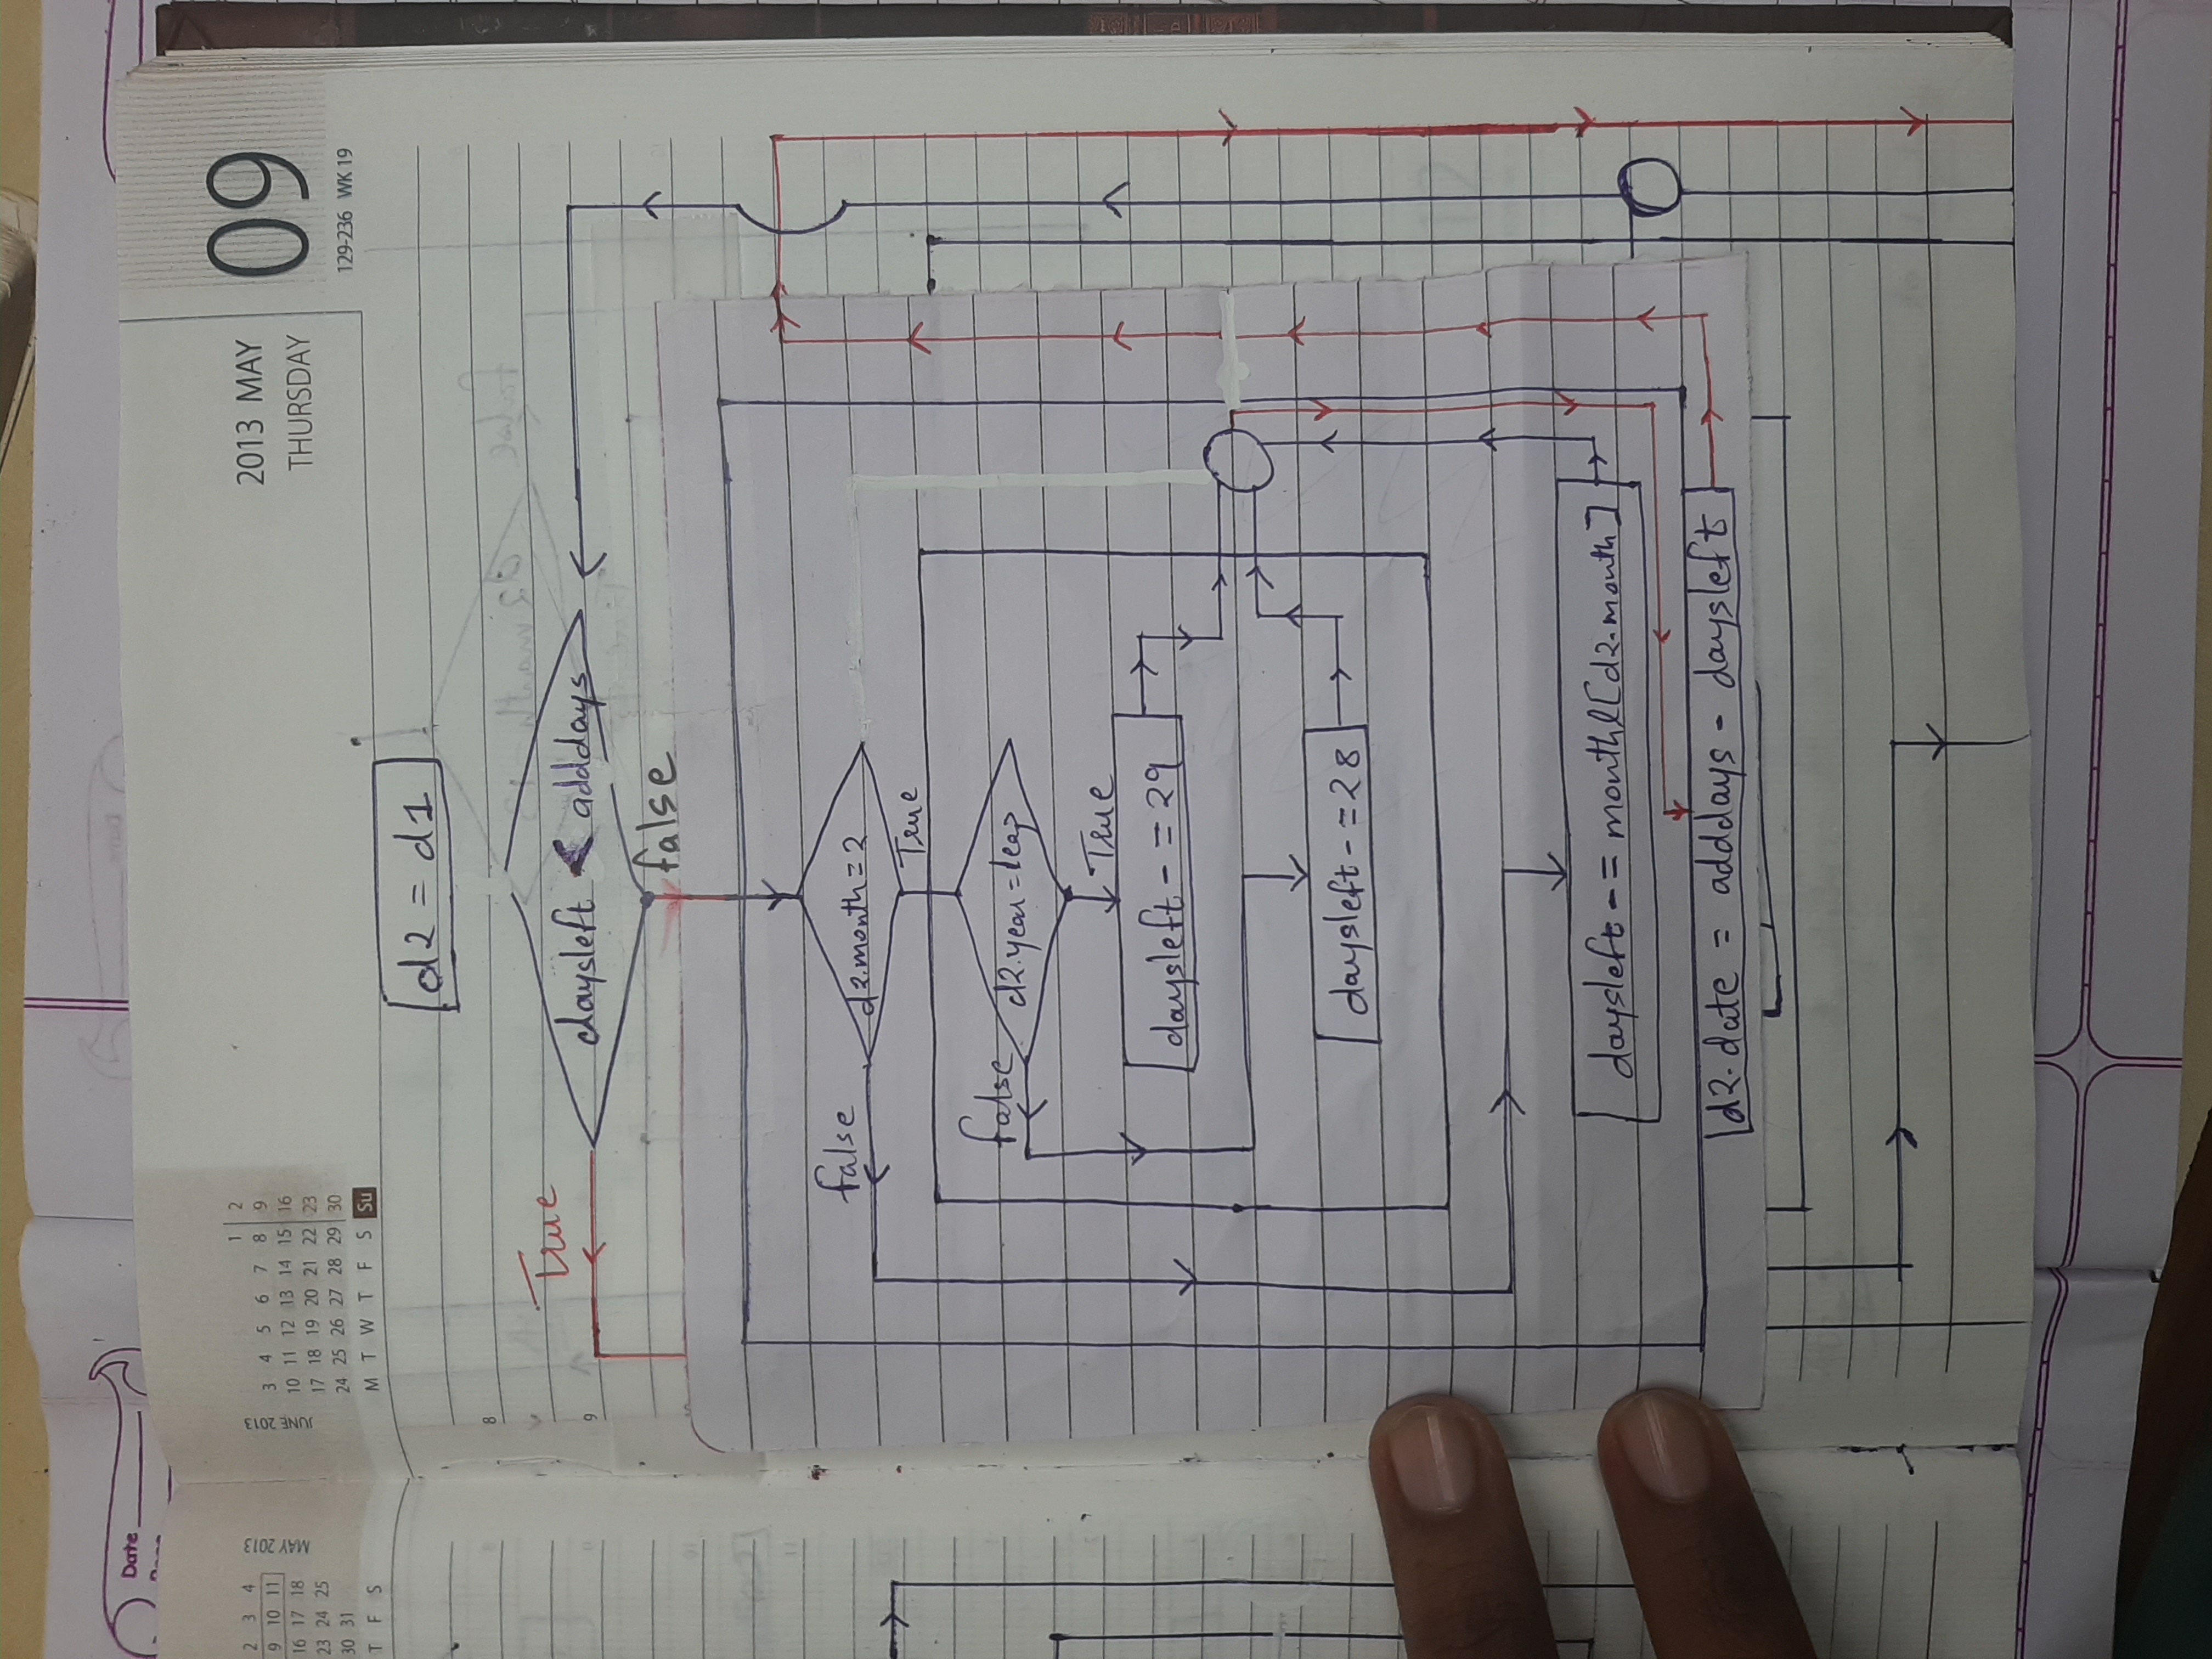 Date
2 3 4
9 10 11
16 17 18
23 24 25
30 31
T F S
MAY 2013
JUNE 2013
1 2
3 4 5 6 7 8 9
10 11 12 13 14 15 16
17 18 19 20 21 22 23
24 25 26 27 28 29 30
M T W T F S Su
2013 MAY
THURSDAY
09
129-236 WK 19
d2 = d1
8
True
daysleft < adddays
9
false
false
d2.month = 2
True
false
d2.year = leap
True
daysleft - = 29
daysleft - = 28
daysleft - = monthl[d2.month]
d2.date = adddays - daysleft